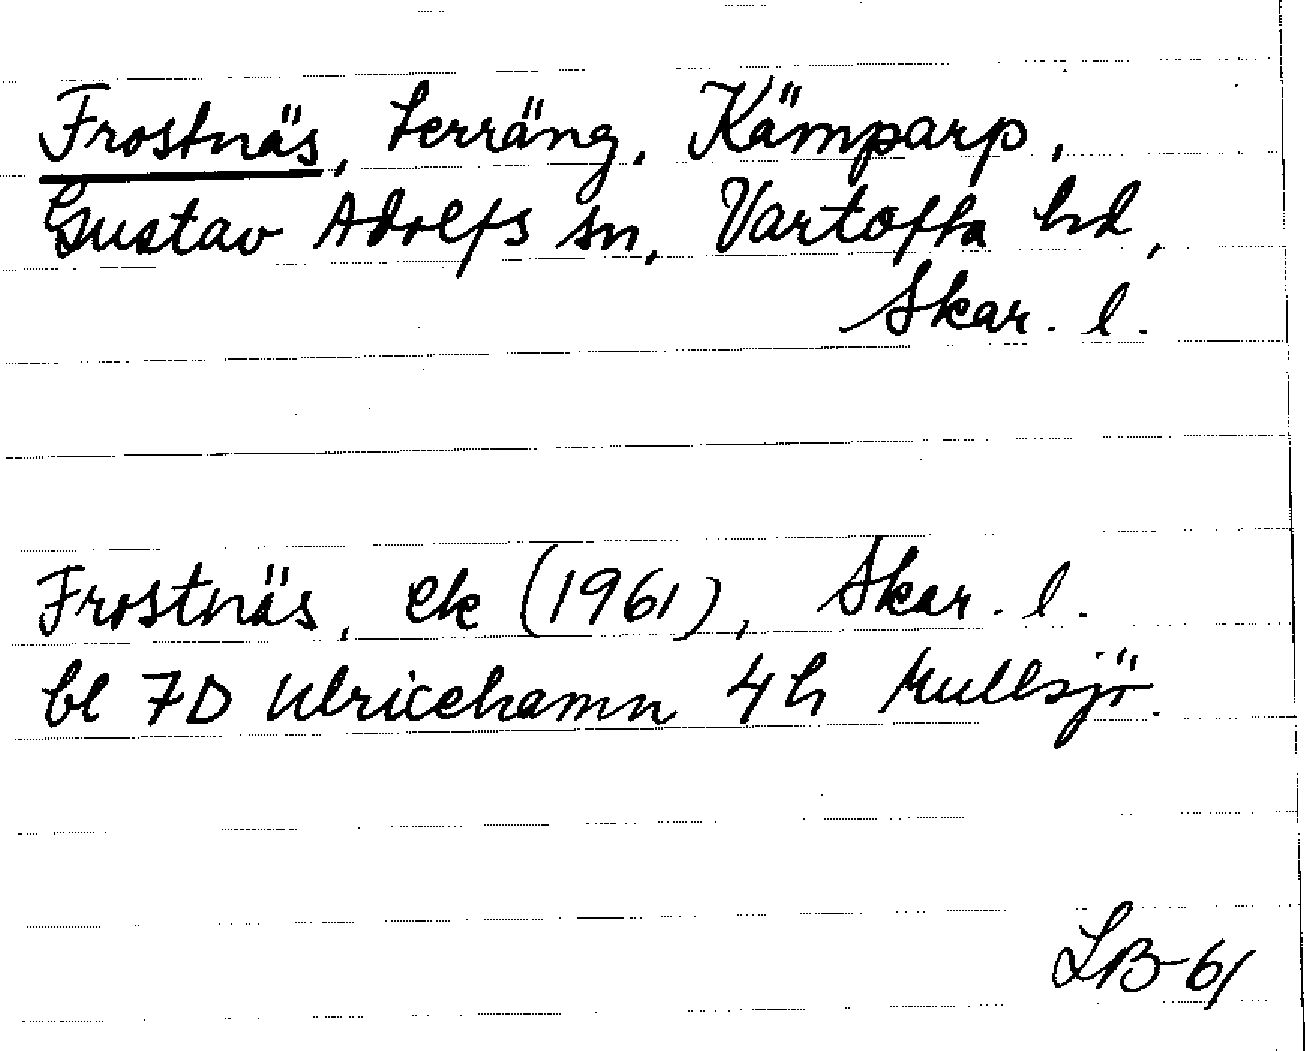 Frostnäs, terräng, Kämparp,
Gustav Adolfs sn, Vartofta hd,
Skar. l.
Frostnäs, ek (1961), Skar. l.
bl 7D Ulricehamn 4h Mullsjö.
LB-61